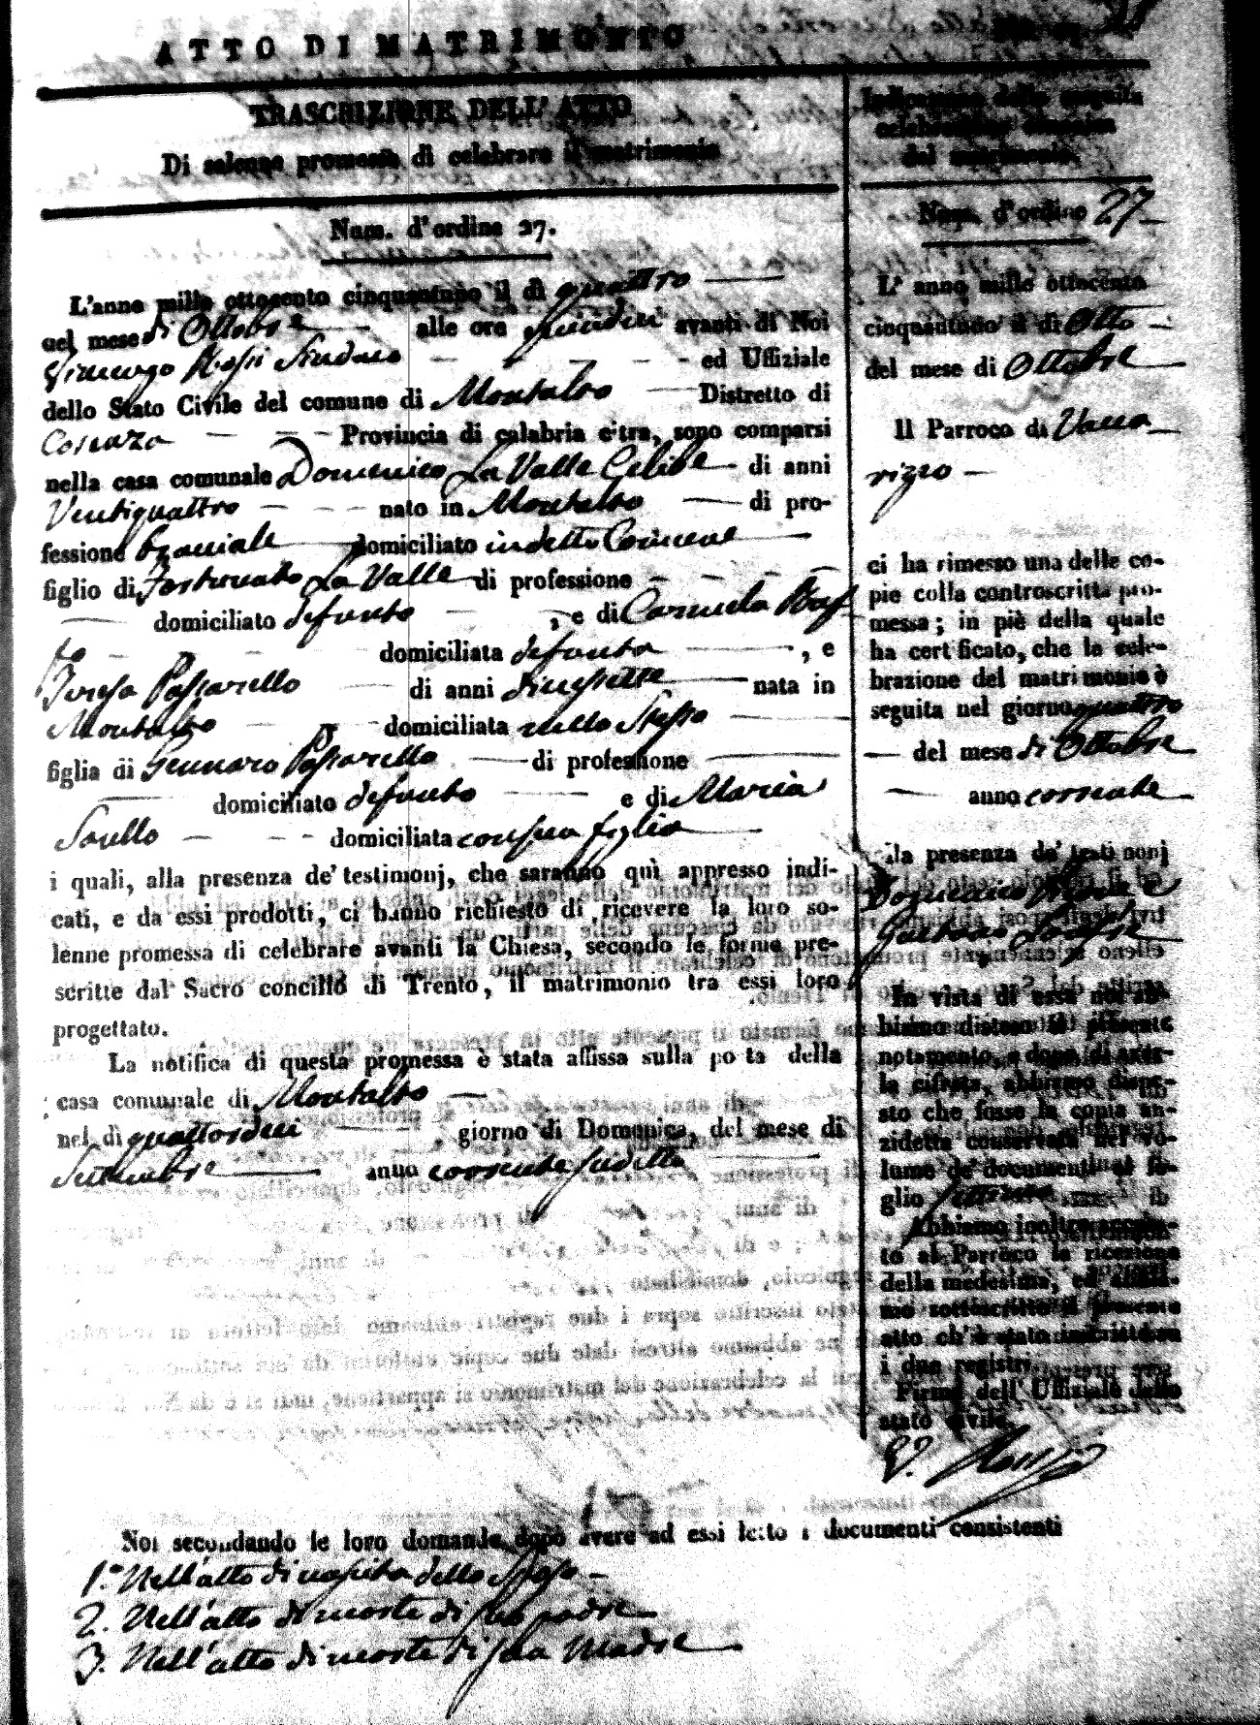 ATTO DI MATRIMONIO
TRASCRIZIONE DELL' ATTO
Di solenne promessa di celebrare il matrimonio
Num. d'ordine 27.
L'anno mille ottocento cinquantuno il dì quattro
nel mese di Ottobre alle ore quindici avanti di Noi
Rossi Sindaco ed Uffiziale
dello Stato Civile del comune di Montalto Distretto di
Cosenza Provincia di calabria citra, sono comparsi
nella casa comunale Domenico La Valle Celibe di anni
Ventiquattro nato in Montalto di pro-
fessione bracciale domiciliato in detto Comune
figlio di Fortunato La Valle di professione
domiciliato defunto , e di Carmela
domiciliata defunta , e
Teresa Passarello di anni diciessette nata in
Montalto domiciliata nello stesso
figlia di Gennaro Passarello di professione
domiciliato defunto e di Maria
domiciliata con sua figlia
i quali, alla presenza de' testimonj, che saranno quì appresso indi-
cati, e da essi prodotti, ci hanno richiesto di ricevere la loro so-
lenne promessa di celebrare avanti la Chiesa, secondo le forme pre-
scritte dal Sacro concilio di Trento, il matrimonio tra essi loro
progettato.
La notifica di questa promessa è stata affissa sulla po ta della
casa comunale di Montalto
nel dì quattordici giorno di Domenica, del mese di
Settembre anno corrente sudetto
Noi secondando le loro domande dopo avere ad essi letto i documenti consistenti
1.° Nell'atto di nascita dello Sposo
2. Nell'atto di morte di suo padre
3. Nell'atto di morte di sua Madre
Indicazione della seguita
celebrazione canonica
del matrimonio.
Num. d'ordine 27
L' anno mille ottocento
cinquantuno il dì Otto
del mese di Ottobre
Il Parroco di Vacca
rizzo
ci ha rimesso una delle co-
pie colla controscritta pro-
messa; in piè della quale
ha cert ficato, che la cele-
brazione del matrimonio è
seguita nel giorno quattro
del mese di Ottobre
anno corrente
alla presenza de' testimonj
Domenico
Gaetano
In vista di essa noi ab-
biamo disteso il presente
notamento, e dopo di aver-
la cifrata, abbiamo dispo-
sto che fosse la copia an-
zidetta conservata nel vo-
lume de' documenti al fo-
glio
Abbiamo inoltre accusa-
to al Parroco la ricezione
della medesima, ed abbia-
mo sottoscritto il presente
atto ch'è stato inscritto su
i due registri.
Firma dell' Uffiziale dello
stato civile.
Rossi